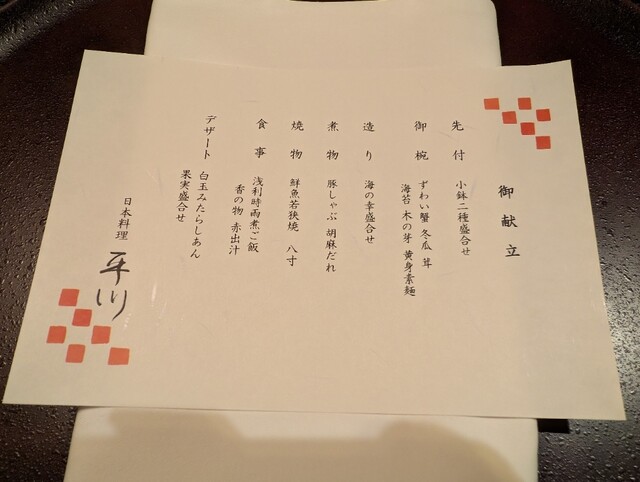 御献立
先付 小鉢二種盛合せ
御椀 ずわい蟹 冬瓜 茸
海苔 木の芽 黄身素麺
造り 海の幸盛合せ
煮物 豚しゃぶ 胡麻だれ
焼物 鮮魚若狭焼 八寸
食事 浅利時雨煮ご飯
香の物 赤出汁
デザート 白玉みたらしあん
果実盛合せ
日本料理 平川